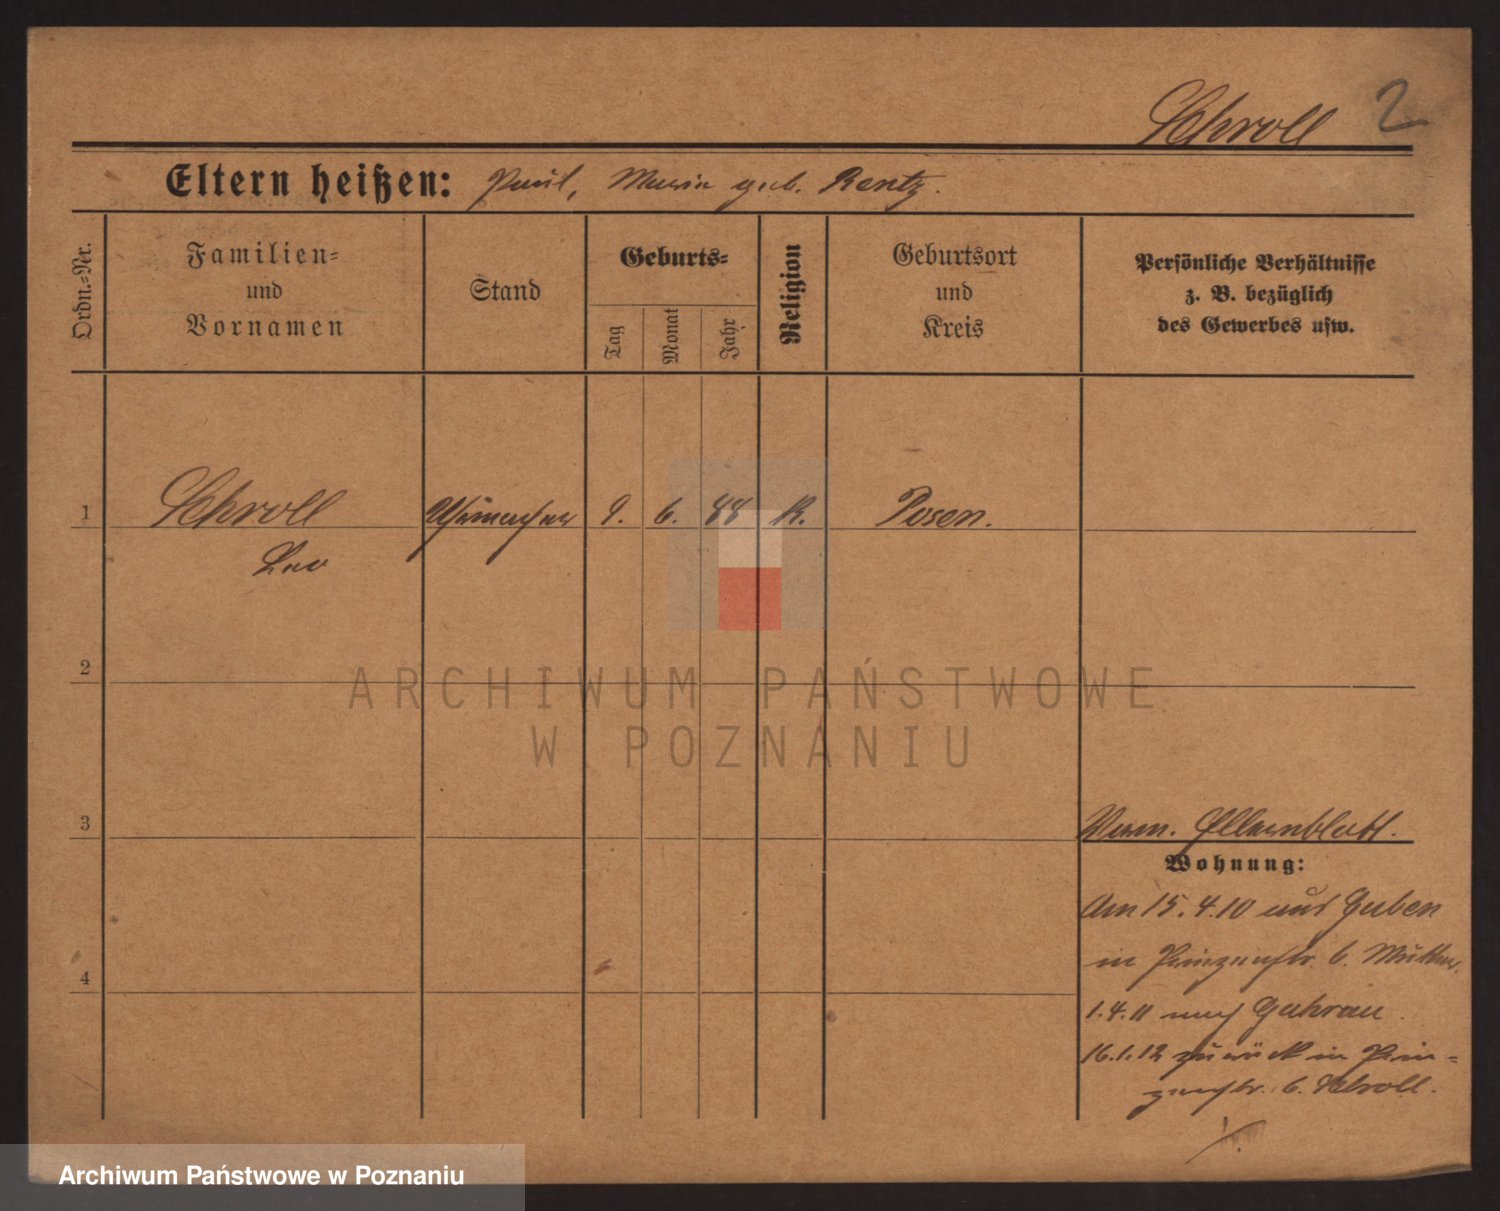 Schroll 2
Eltern heißen: Paul, Maria geb. Rentz.
Ordn.=Nr.
Familien=
und
Vornamen
Stand
Geburts=
Tag
Monat
Jahr
Religion
Geburtsort
und
Kreis
Persönliche Verhältnisse
z. B. bezüglich
des Gewerbes usw.
1 Schroll Uhrmacher 9. 6. 88 K. Posen.
Leo
2
ARCHIWUM PAŃSTWOWE
W POZNANIU
3
Verm. Elternblatt.
Wohnung:
Am 15.4.10 aus Guben
in Prinzenstr. 6. Mutter.
4
1.4.11 nach Guhrau.
16.1.12 zurück in Prin=
zenstr. 6. Schroll.
Archiwum Państwowe w Poznaniu